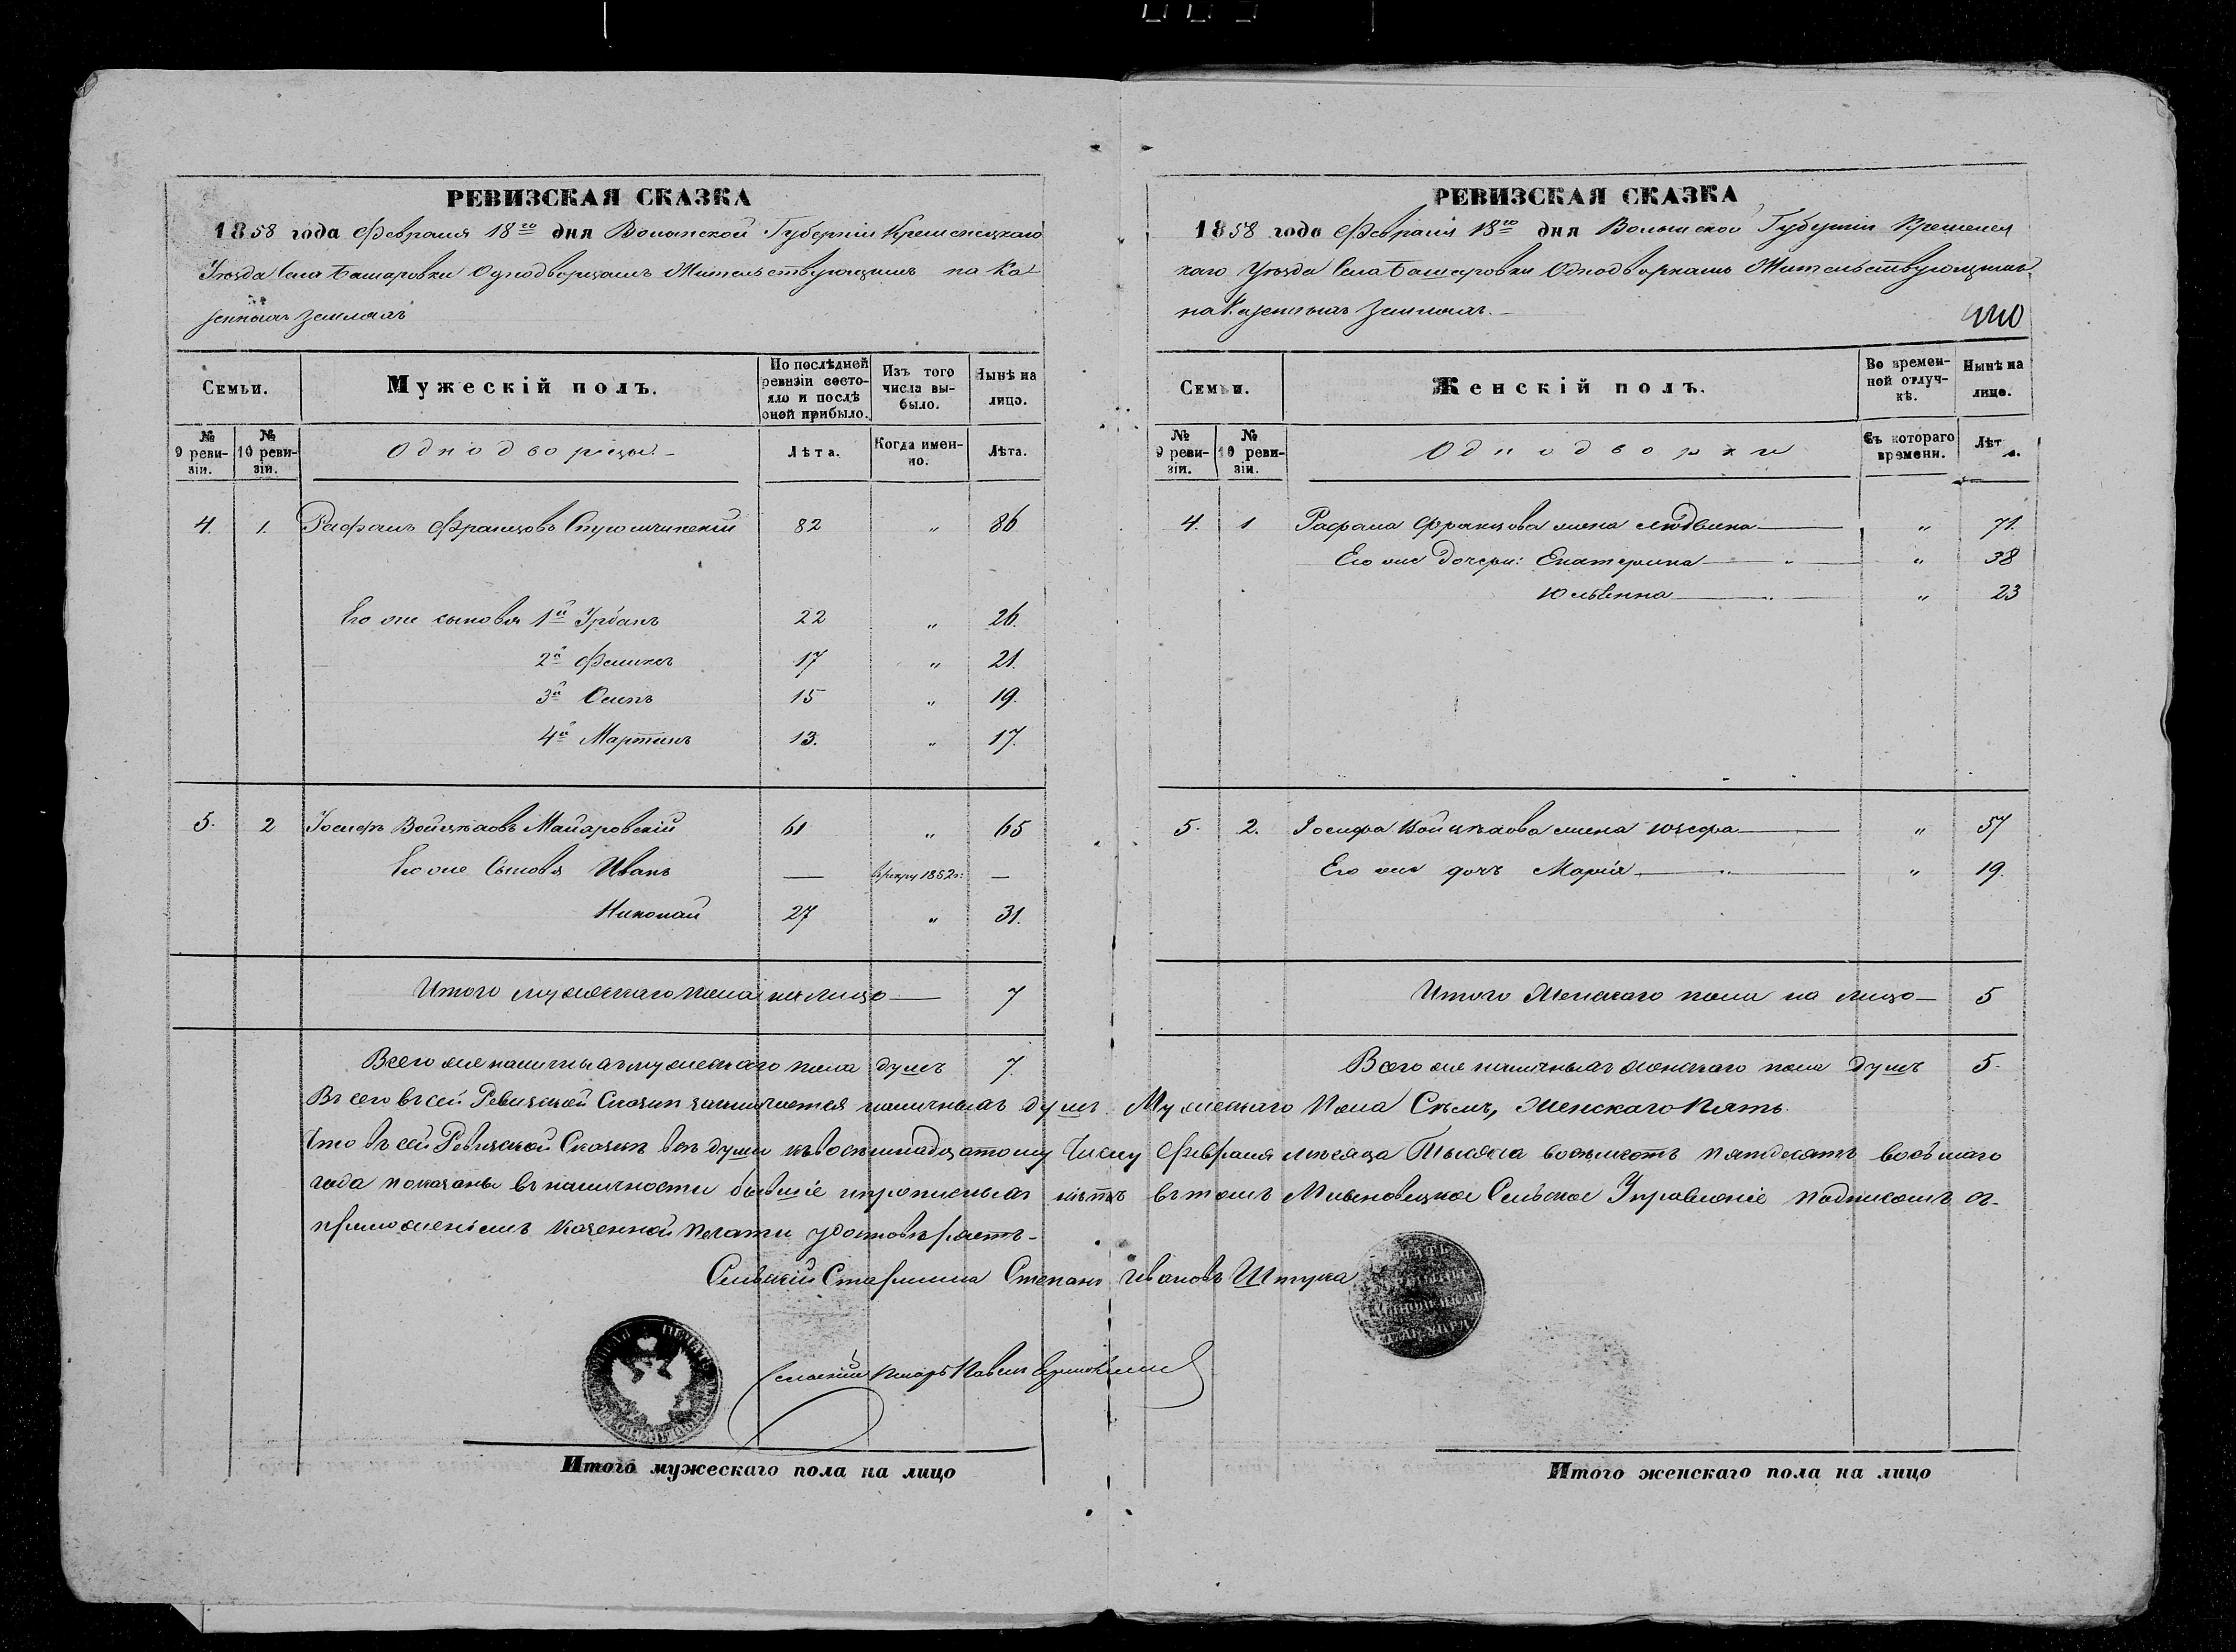 РЕВИЗСКАЯ СКАЗКА
1858 года Февраля 18го дня Волынской Губерніи Кременецкаго
Уѣзда Села Башаровки Однодворцамъ Жительствующимъ на Ка-
зенныхъ земляхъ
Семьи.
Мужескій полъ.
По послѣдней ревизіи состояло и послѣ оной прибыло.
Изъ того числа выбыло.
Нынѣ на лицо.
№ 9 ревизіи.
№ 10 ревизіи.
Однодворцы
Лѣта.
Когда именно.
Лѣта.
4. 1. Рафаилъ Францовъ 82 " 86
Его же сыновья 1й Урбанъ 22 " 26.
2й Феликсъ 17 " 21.
3й Осипъ 15 " 19.
4й Мартинъ 13. " 17.
5. 2 Іосифъ Войцѣховъ Маіаровскій 61 " 65
Его же Сыновя Иванъ — 1852г: —
Николай 27 " 31.
Итого мужескаго пола на лицо — 7
Всего же наличныхъ мужескаго пола душъ 7.
РЕВИЗСКАЯ СКАЗКА
1858 года Февраля 18го дня Волынской Губерніи Кременец
каго Уѣзда Села Башаровки Однодворкамъ Жительствующимъ
на Казенныхъ Земляхъ.
440
Семьи.
Женскій полъ.
Во временной отлучкѣ.
Нынѣ на лицо.
№ 9 ревизіи.
№ 10 ревизіи.
Однодворки
Съ котораго времени.
Лѣта.
4. 1 Рафаила Францова жена Людвика — " 71.
Его же дочери: Екатерина — " 38
Юльянна — " 23
5. 2. Іосифа Войцѣхова жена Юзефа — " 57
Его же дочь Марія — " 19.
Итого Женскаго пола на лицо — 5
Всего же наличныхъ женскаго пола душъ 5.
Всего въ сей Ревизской Сказкѣ заключается наличныхъ душъ. Мужескаго Пола Сѣмъ, Женскаго Пять.
Что въ сей Ревизской Сказкѣ всѣ души къ восѣмнадцатому Числу Февраля мѣсяца Тысяча восѣмсотъ пятдесятъ восьмаго
года показаны въ наличности бывшіе и прописныхъ нѣтъ въ томъ Сельское Управленіе подписомъ съ-
приложеніемъ казенной печати удостовѣряетъ-
Сельскій Старшина Степанъ Ивановъ Штука
Сельскій Писарь Павелъ
Итого мужескаго пола на лицо
Итого женскаго пола на лицо